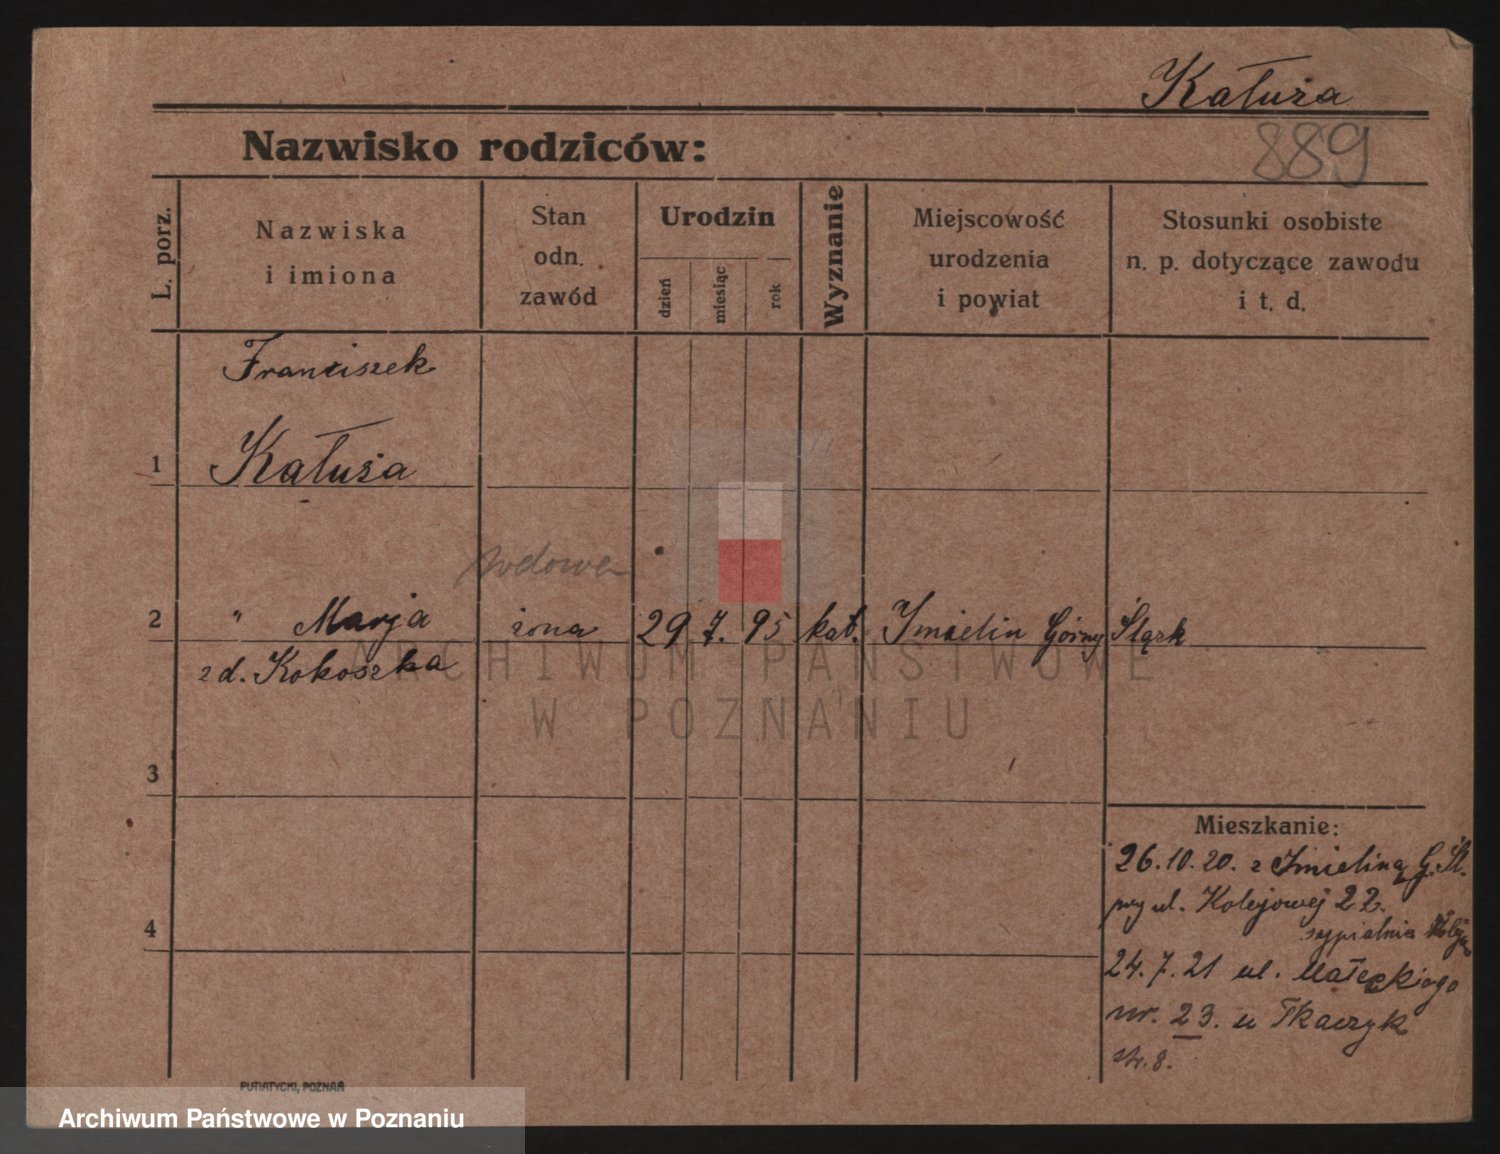 Kałuża
889
Nazwisko rodziców:
L. porz.
Nazwiska
i imiona
Stan
odn.
zawód
Urodzin
dzień
miesiąc
rok
Wyznanie
Miejscowość
urodzenia
i powiat
Stosunki osobiste
n. p. dotyczące zawodu
i t. d.
Franciszek
1 Kałuża
wdowa
2 " Marja żona 29 7. 95 kat. Imielin Górny Śląsk
z d. Kokoszka
ARCHIWUM PAŃSTWOWE
W POZNANIU
3
Mieszkanie:
26.10.20. z Imielina G. Śl.
przy ul. Kolejowej 22.
sypialnia
4
24.7.21 ul. Małeckiego
nr. 23. u Tkaczyk
str. 8.
PUTIATYCKI, POZNAŃ
Archiwum Państwowe w Poznaniu